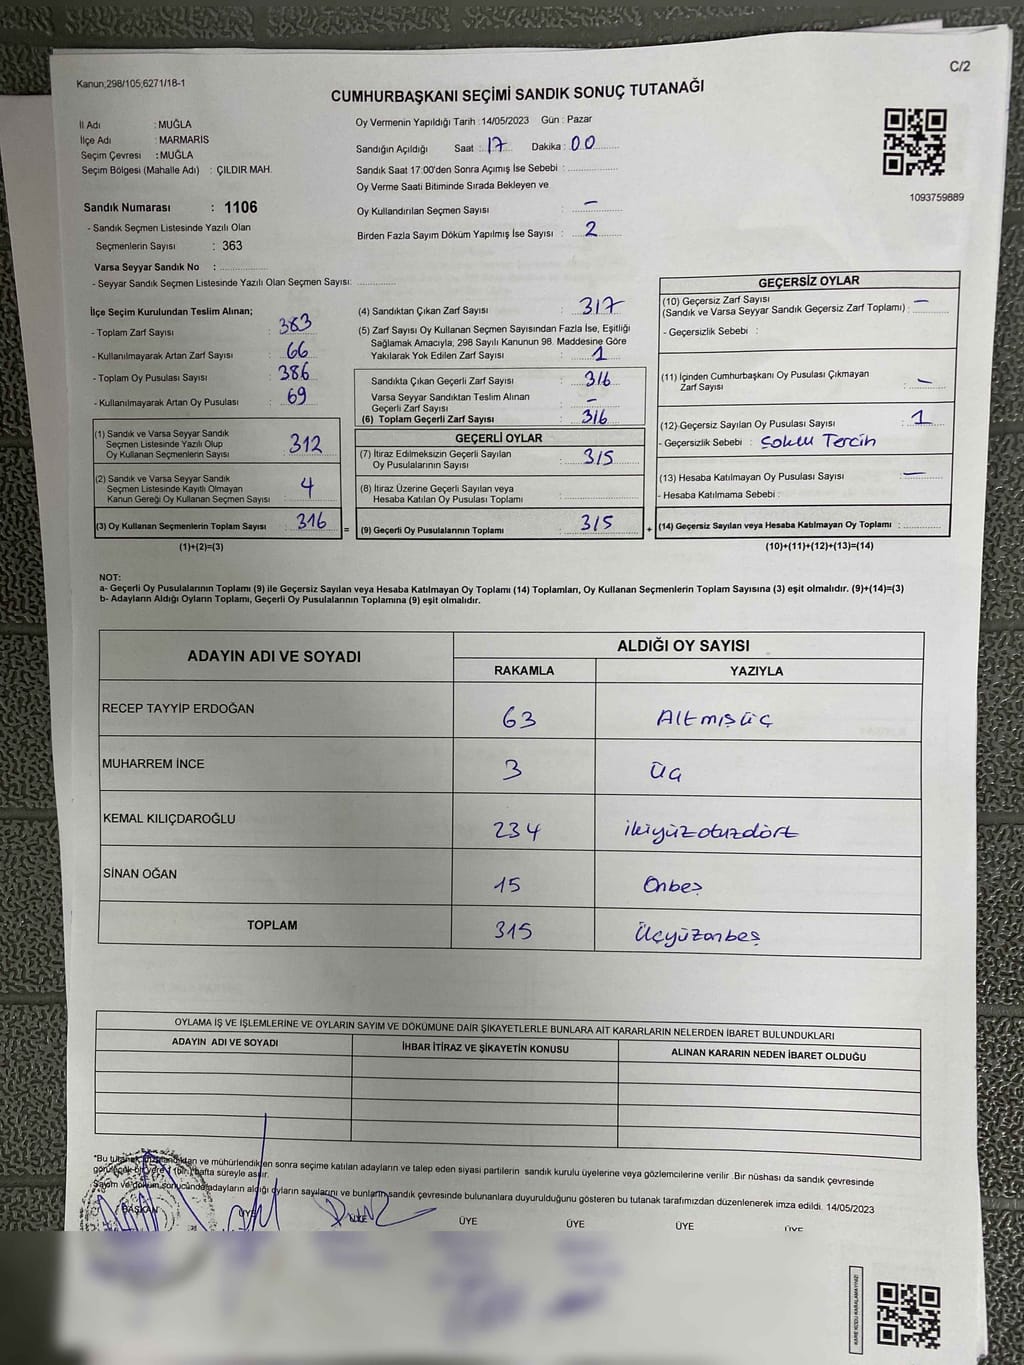 C/2
Kanun;298/105;6271/18-1
CUMHURBAŞKANI SEÇİMİ SANDIK SONUÇ TUTANAĞI
İl Adı : MUĞLA
İlçe Adı : MARMARİS
Seçim Çevresi : MUĞLA
Seçim Bölgesi (Mahalle Adı) : ÇILDIR MAH.
Sandık Numarası : 1106
- Sandık Seçmen Listesinde Yazılı Olan
Seçmenlerin Sayısı : 363
Varsa Seyyar Sandık No :
- Seyyar Sandık Seçmen Listesinde Yazılı Olan Seçmen Sayısı:
Oy Vermenin Yapıldığı Tarih : 14/05/2023 Gün : Pazar
Sandığın Açıldığı Saat : 17 Dakika : 00
Sandık Saat 17:00'den Sonra Açımış İse Sebebi :
Oy Verme Saati Bitiminde Sırada Bekleyen ve
Oy Kullandırılan Seçmen Sayısı : -
Birden Fazla Sayım Döküm Yapılmış İse Sayısı : 2
1093759889
İlçe Seçim Kurulundan Teslim Alınan;
- Toplam Zarf Sayısı : 383
- Kullanılmayarak Artan Zarf Sayısı : 66
- Toplam Oy Pusulası Sayısı : 386
- Kullanılmayarak Artan Oy Pusulası : 69
(1) Sandık ve Varsa Seyyar Sandık
Seçmen Listesinde Yazılı Olup
Oy Kullanan Seçmenlerin Sayısı : 312
(2) Sandık ve Varsa Seyyar Sandık
Seçmen Listesinde Kayıtlı Olmayan
Kanun Gereği Oy Kullanan Seçmen Sayısı : 4
(3) Oy Kullanan Seçmenlerin Toplam Sayısı : 316
(1)+(2)=(3)
=
(4) Sandıktan Çıkan Zarf Sayısı : 317
(5) Zarf Sayısı Oy Kullanan Seçmen Sayısından Fazla İse, Eşitliği
Sağlamak Amacıyla; 298 Sayılı Kanunun 98. Maddesine Göre
Yakılarak Yok Edilen Zarf Sayısı : 1
Sandıkta Çıkan Geçerli Zarf Sayısı : 316
Varsa Seyyar Sandıktan Teslim Alınan
Geçerli Zarf Sayısı : -
(6) Toplam Geçerli Zarf Sayısı : 316
GEÇERLİ OYLAR
(7) İtiraz Edilmeksizin Geçerli Sayılan
Oy Pusulalarının Sayısı : 315
(8) İtiraz Üzerine Geçerli Sayılan veya
Hesaba Katılan Oy Pusulası Toplamı :
(9) Geçerli Oy Pusulalarının Toplamı : 315
+
GEÇERSİZ OYLAR
(10) Geçersiz Zarf Sayısı
(Sandık ve Varsa Seyyar Sandık Geçersiz Zarf Toplamı) : -
- Geçersizlik Sebebi :
(11) İçinden Cumhurbaşkanı Oy Pusulası Çıkmayan
Zarf Sayısı : -
(12) Geçersiz Sayılan Oy Pusulası Sayısı : 1
- Geçersizlik Sebebi :
(13) Hesaba Katılmayan Oy Pusulası Sayısı : -
- Hesaba Katılmama Sebebi :
(14) Geçersiz Sayılan veya Hesaba Katılmayan Oy Toplamı :
(10)+(11)+(12)+(13)=(14)
NOT:
a- Geçerli Oy Pusulalarının Toplamı (9) ile Geçersiz Sayılan veya Hesaba Katılmayan Oy Toplamı (14) Toplamları, Oy Kullanan Seçmenlerin Toplam Sayısına (3) eşit olmalıdır. (9)+(14)=(3)
b- Adayların Aldığı Oyların Toplamı, Geçerli Oy Pusulalarının Toplamına (9) eşit olmalıdır.
ADAYIN ADI VE SOYADI ALDIĞI OY SAYISI
RAKAMLA YAZIYLA
RECEP TAYYİP ERDOĞAN 63 Altmışüç
MUHARREM İNCE 3 Üç
KEMAL KILIÇDAROĞLU 234 ikiyüzotuzdört
SİNAN OĞAN 15 Onbeş
TOPLAM 315 Üçyüzonbeş
OYLAMA İŞ VE İŞLEMLERİNE VE OYLARIN SAYIM VE DÖKÜMÜNE DAİR ŞİKAYETLERLE BUNLARA AİT KARARLARIN NELERDEN İBARET BULUNDUKLARI
ADAYIN ADI VE SOYADI İHBAR İTİRAZ VE ŞİKAYETİN KONUSU ALINAN KARARIN NEDEN İBARET OLDUĞU
*Bu tutanak ve mühürlendikten sonra seçime katılan adayların ve talep eden siyasi partilerin sandık kurulu üyelerine veya gözlemcilerine verilir. Bir nüshası da sandık çevresinde
görülecek bir yere 1 (bir) hafta süreyle asılır.
Sayım ve döküm sonucunda adayların aldığı oyların sayılarını ve bunların sandık çevresinde bulunanlara duyurulduğunu gösteren bu tutanak tarafımızdan düzenlenerek imza edildi. 14/05/2023
BAŞKAN ÜYE ÜYE ÜYE ÜYE ÜYE
KARE KODU KARALAMAYINIZ!